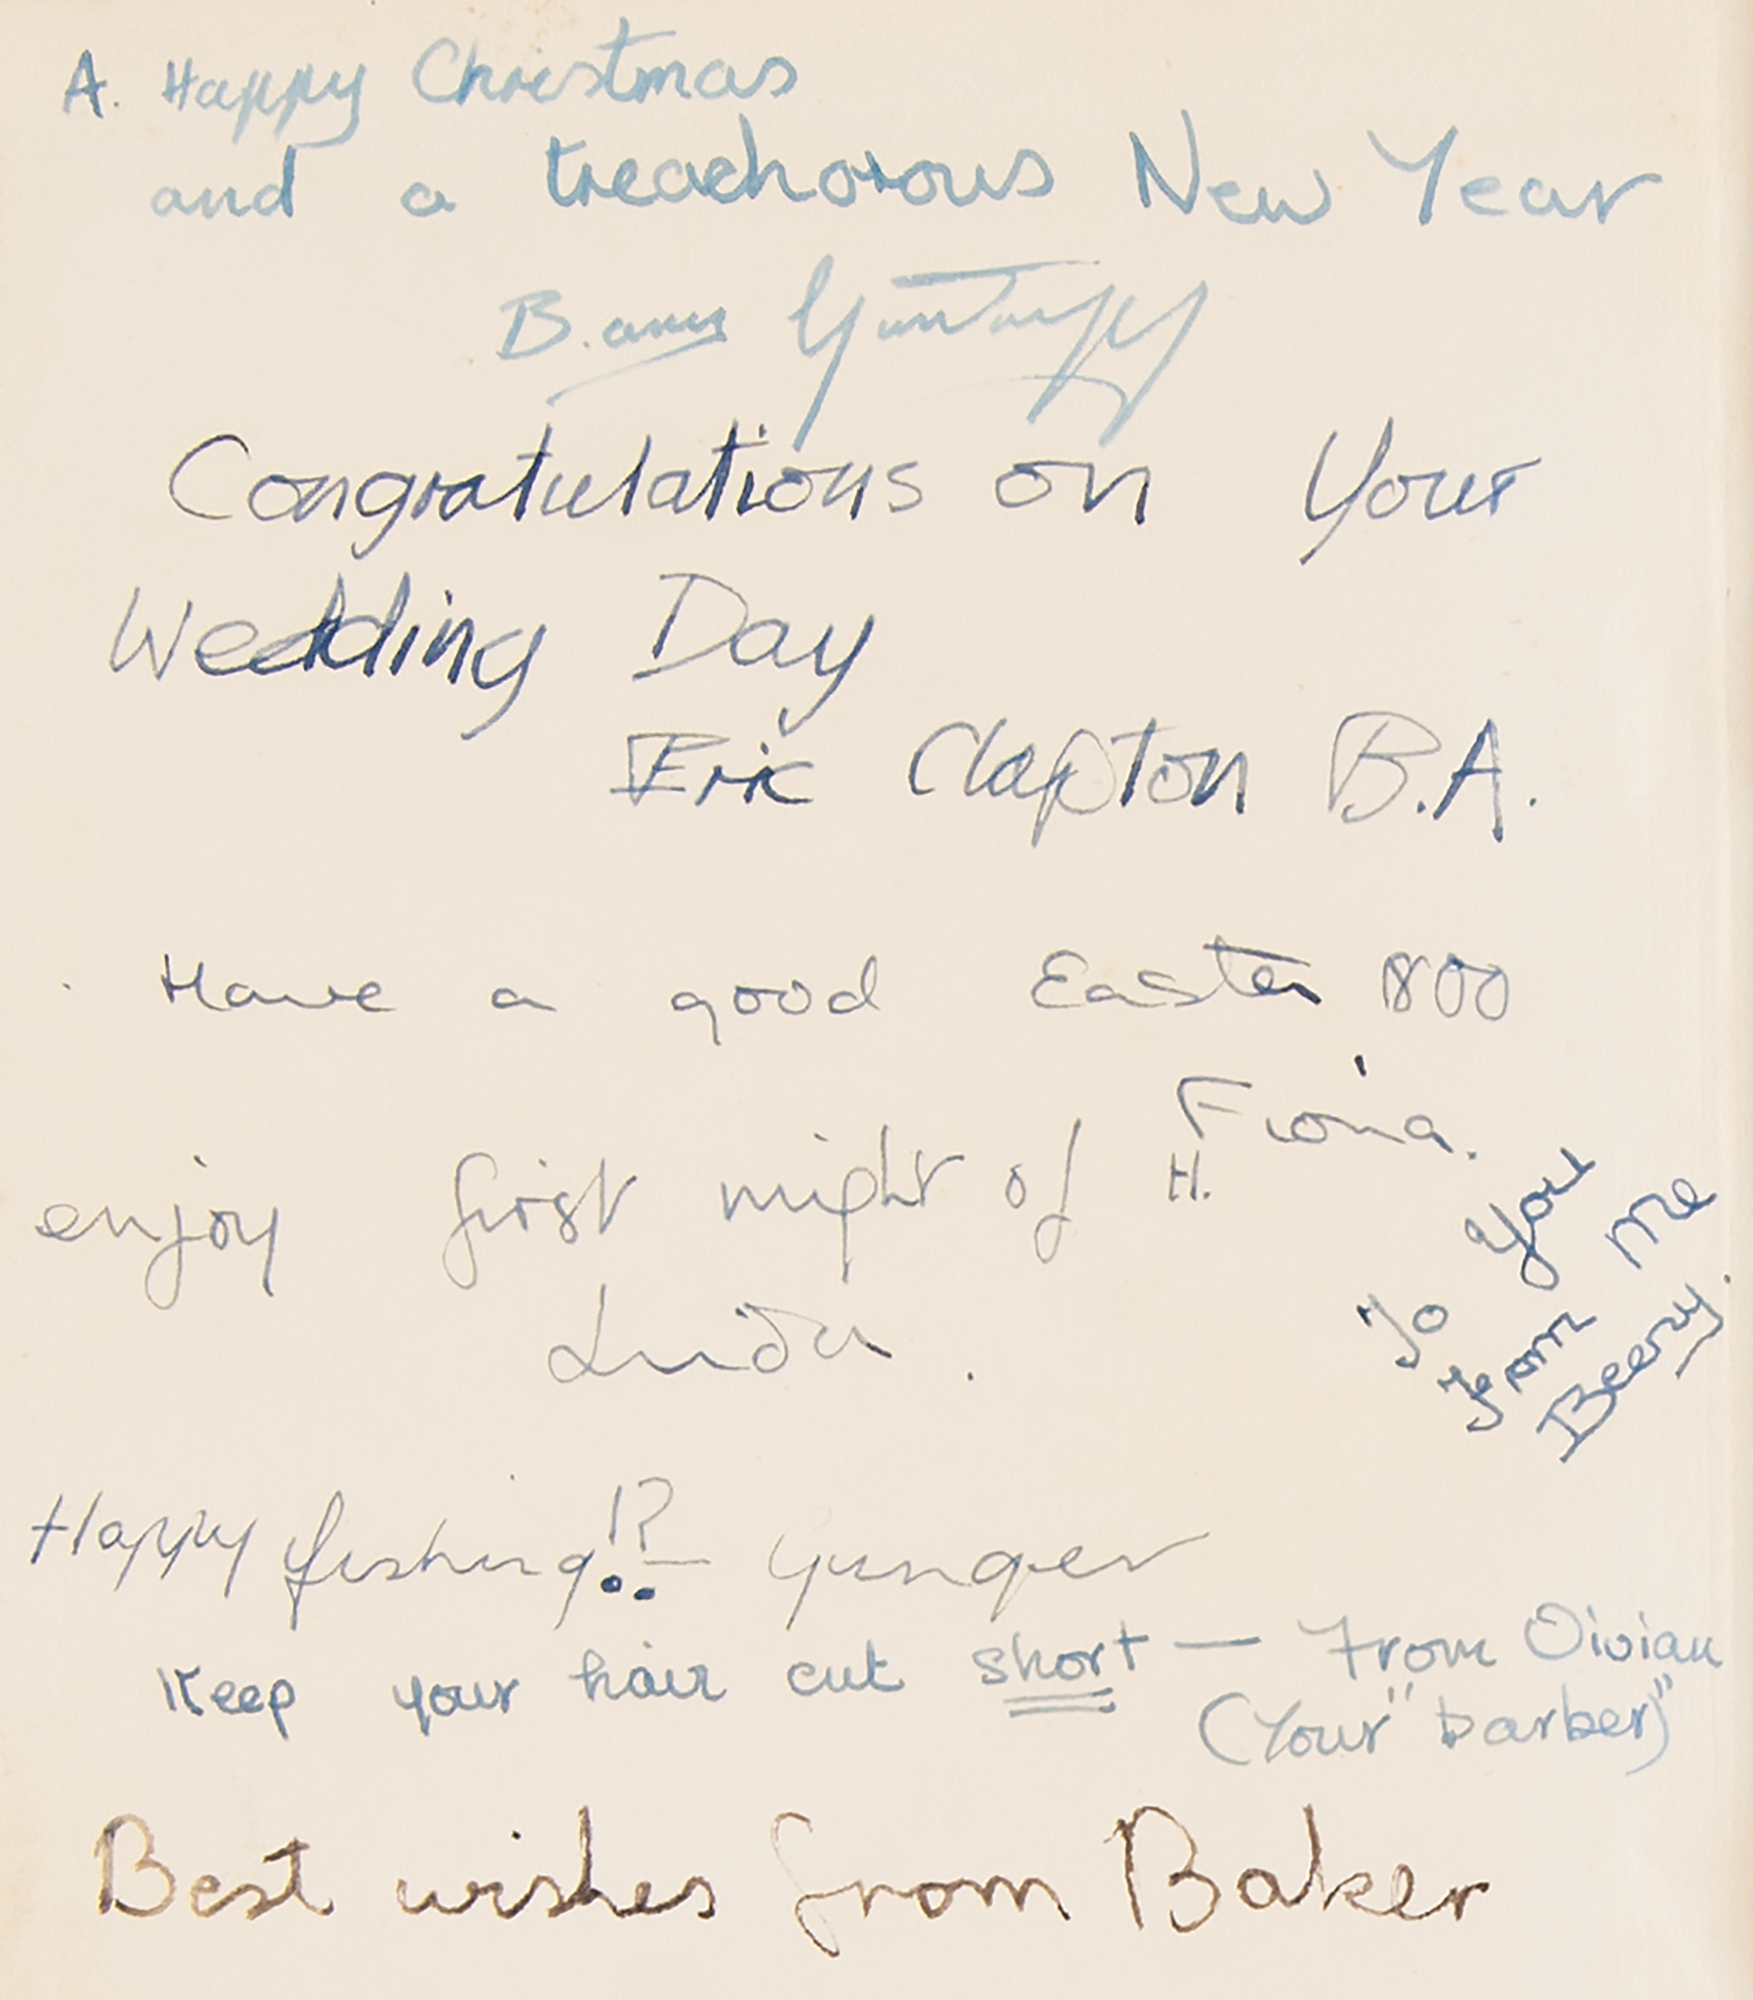 A. Happy Christmas
and a treachorous New Year
Congratulations on Your
Wedding Day
Eric Clapton B.A.
Have a good Easter 800
Fiona.
enjoy first night of H.
To You
From Me
Beery.
Happy fishing!? — Yunger
Keep your hair cut short — From Vivian
(Your "barber)"
Best wishes from Baker